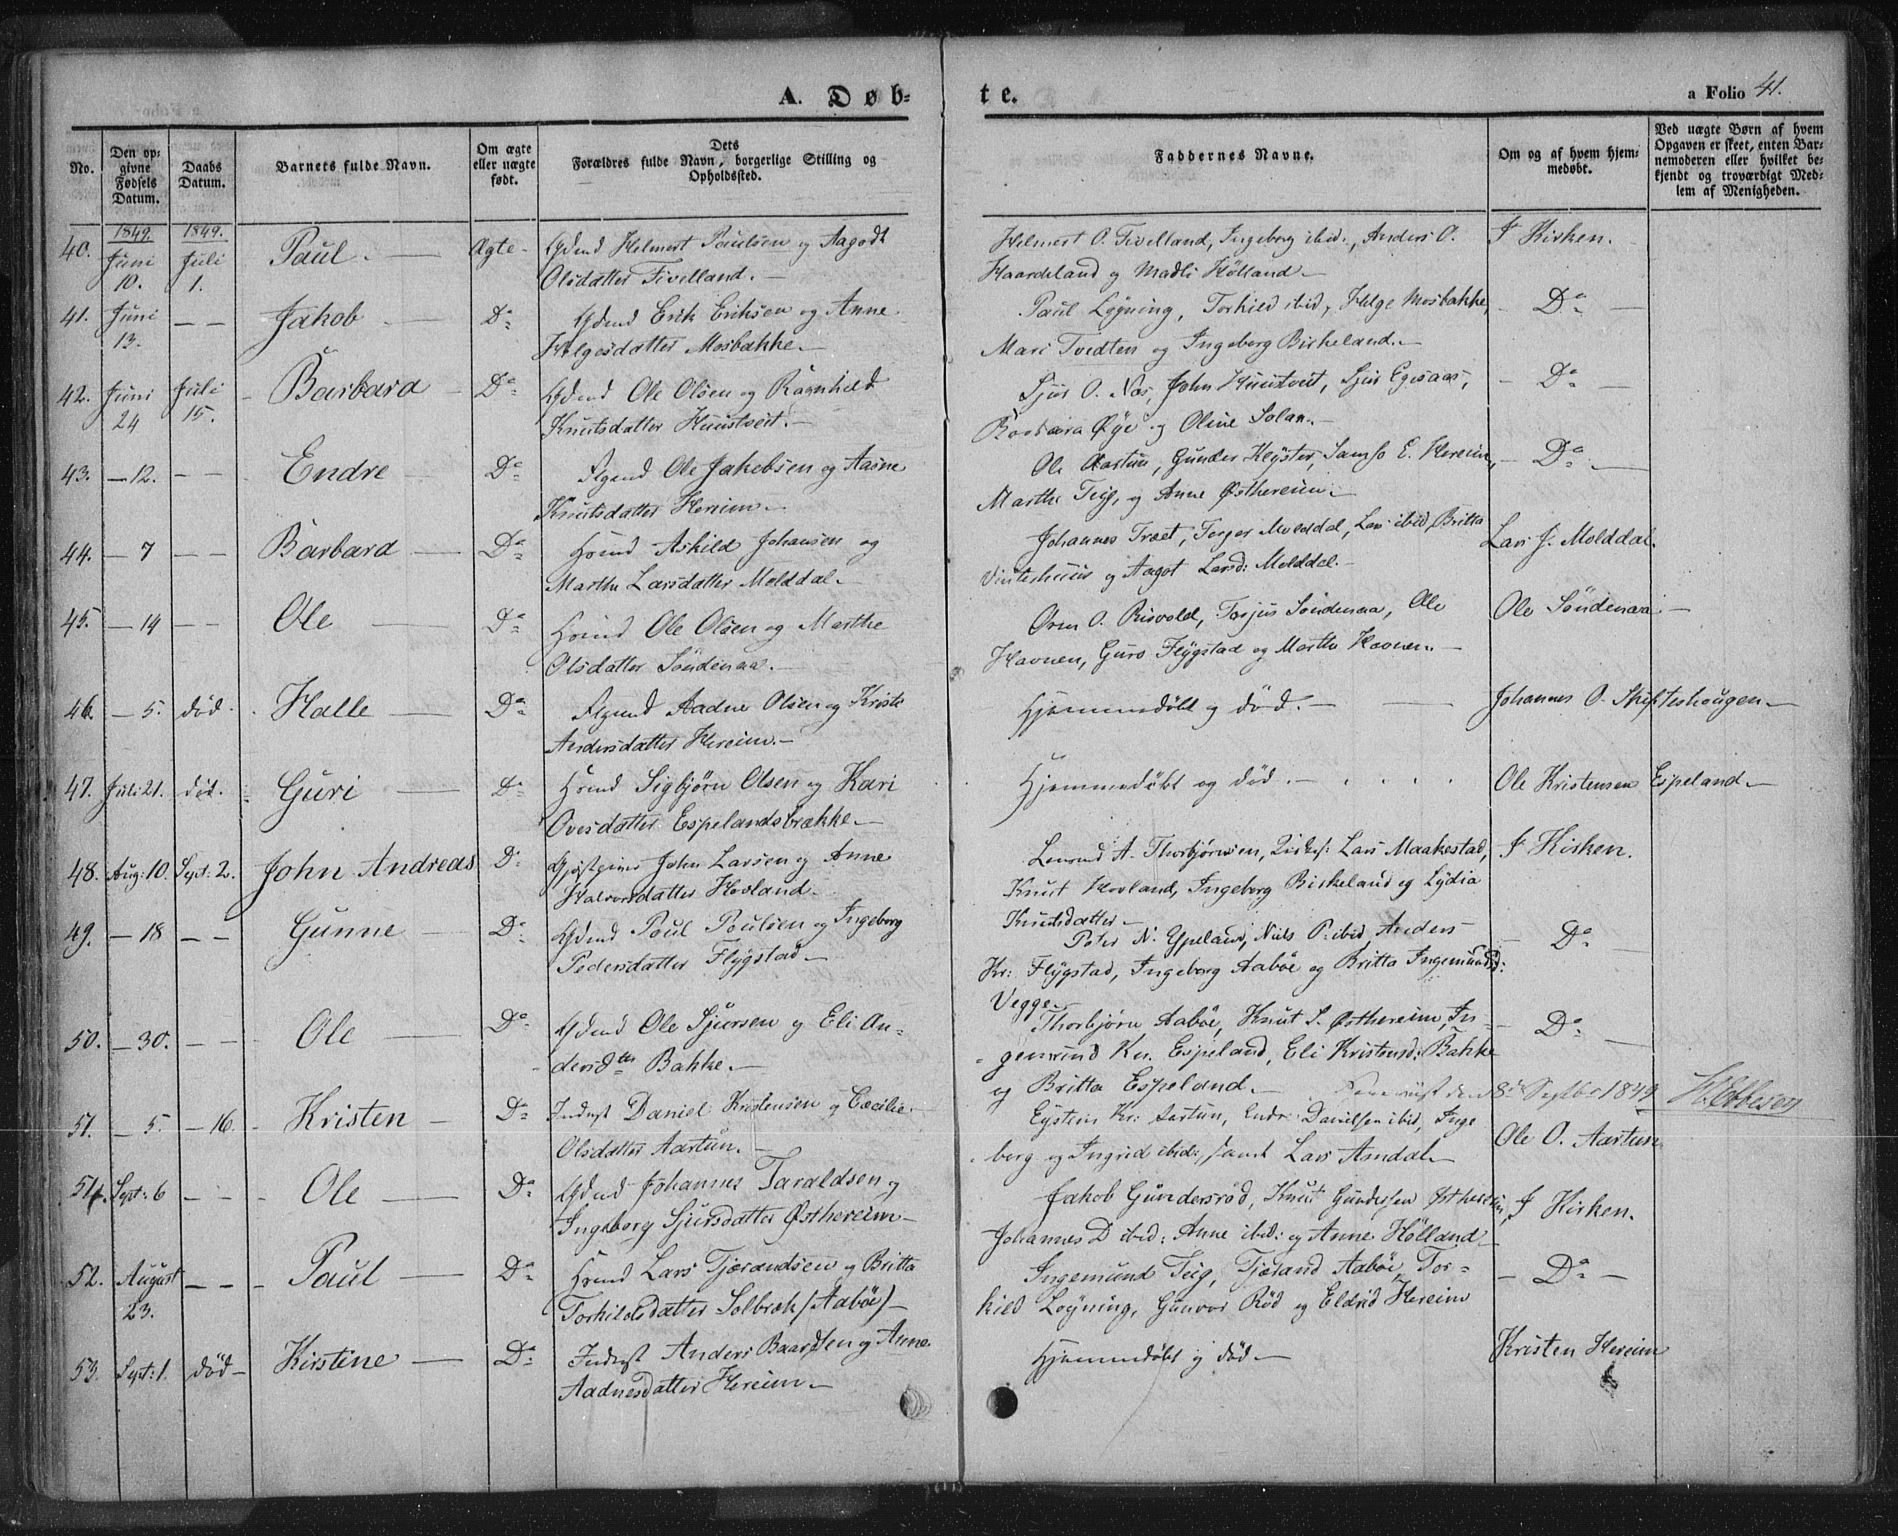 A. Døb-
te.
a Folio 41.
No.
Den op-
givne
Fødsels
Datum.
Daabs
Datum.
Barnets fulde Navn.
Om ægte
eller uægte
født.
Dets
Forældres fulde Navn, borgerlige Stilling og
Opholdssted.
Faddernes Navne.
Om og af hvem hjem-
medøbt.
Ved uægte Børn af hvem
Opgaven er skeet, enten Bar-
nemoderen eller hvilket be-
kjendt og troværdigt Med-
lem af Menigheden.
1849. 1849.
40. Juni 10. Juli 1. Paul. Ægte Gdmd Helmert Paulsen og Aagodt
Olsdatter Fivelland.
Helmert O. Fivelland, Ingeborg ibid:, Anders O.
Haardeland og Madli Hölland
I Kirken.
41. Juni 13. — — Jakob D° Gdmd Erik Eriksen og Anne
Helgesdatter Mosbakke.
Paul Løyning, Torkild ibid, Helge Mosbakke,
Mari Tvedten og Ingeborg Birkeland.
D°
42. Juni 24 Juli 15. Barbara D° Gdmd Ole Olsen og Ragnhild
Knutsdatter Huustveit.
Sjur O. Næs, John Huustveit, Sjur Egesaas,
Barbara Øye og Oline Solan.
D°
43. — 12. — — Endre D° Ole Jakobsen og Aasne
Knutsdatter Hereim.
Ole Aartun, Gunder Kløster, Samso E. Hereim,
Marthe Teig, og Anne Østhereim.
D°
44. — 7 — — Barbara D° Hsmd Askild Johansen og
Martha Larsdatter Molddal.
Johannes Træet, Torger Molddal, Lars ibid, Britta
Vintershuus og Aagot Larsd: Molddal.
Lars J. Molddal.
45. — 14 — — Ole D° Hsmd Ole Olsen og Marthe
Olsdatter Söndenaa.
Orm O. Risvold, Torjus Söndenaa, Ole
Havnen, Guro Flÿgstad og Martha Havnen.
Ole Söndenaa
46. — 5. død. Halle D° Aadne Olsen og Kristi
Andersdatter Hereim.
Hjemmedöbt og død.
Johannes O. Skifteshougen
47. Juli 21. død. Guri D° Hsmd Sigbjørn Olsen og Kari
Ovesdatter Espelandsbrække.
Hjemmedöbt og död.
Ole Kristensen Espeland
48. Aug: 10. Sept: 2. John Andreas D° Gjæstgiver John Larsen og Anne
Halvorsdatter Hovland.
Lensmd A. Thorbjørnsen, Lars Maakestad,
Knut Hovland, Ingeborg Birkeland og Lydia
Knutsdatter
I Kirken.
49. — 18 — — Gunne D° Gdmd Poul Poulsen og Ingeborg
Pedersdatter Flÿgstad
Peter N. Ypeland, Niels P. ibid, Anders
Kr: Flÿgstad, Ingeborg Aabøe og Britta Ingemundsd:
Vegge
D°
50. — 30. — — Ole D° Gdmd Ole Sjursen og Eli An-
dersdtr Bakke.
Thorbjørn Aabøe, Knut S. Østhereim, In-
gemund Kn. Espeland, Eli Kristensd: Bakke
og Britta Espeland.
D°
8de Septbr 1849 H. Ebbesen
51. — 5. — 16. Kristen D° Inderst Daniel Kristensen og Cæcilie
Olsdatter Aartun.
Eystein Kr: Aartun, Endre Danielsen ibid, Inge
borg og Ingrid ibid:, samt Lars Amdal
Ole O. Aartun
54. Sept: 6 — — Ole D° Gdmd Johannes Taraldsen og
Ingeborg Sjursdatter Østhereim
Jakob Gundersröd, Knut Gundersen Østhereim,
Johannes D ibid: Anne ibid: og Anne Hölland
I Kirken.
52. August 23. — — Paul D° Hsmd Lars Tjærandsen og Britta
Torkildsdatter Solbræk /Aabøe/
Ingemund Teig, Tjærand Aabøe, Tor-
kild Løyning, Gunvor Röd og Eldrid Hereim
D°
53. Sept: 1. död Kirstine D° Inderst Anders Baardsen og Anne
Aadnesdatter Hereim.
Hjemmedöbt og död
Kristen Hereim